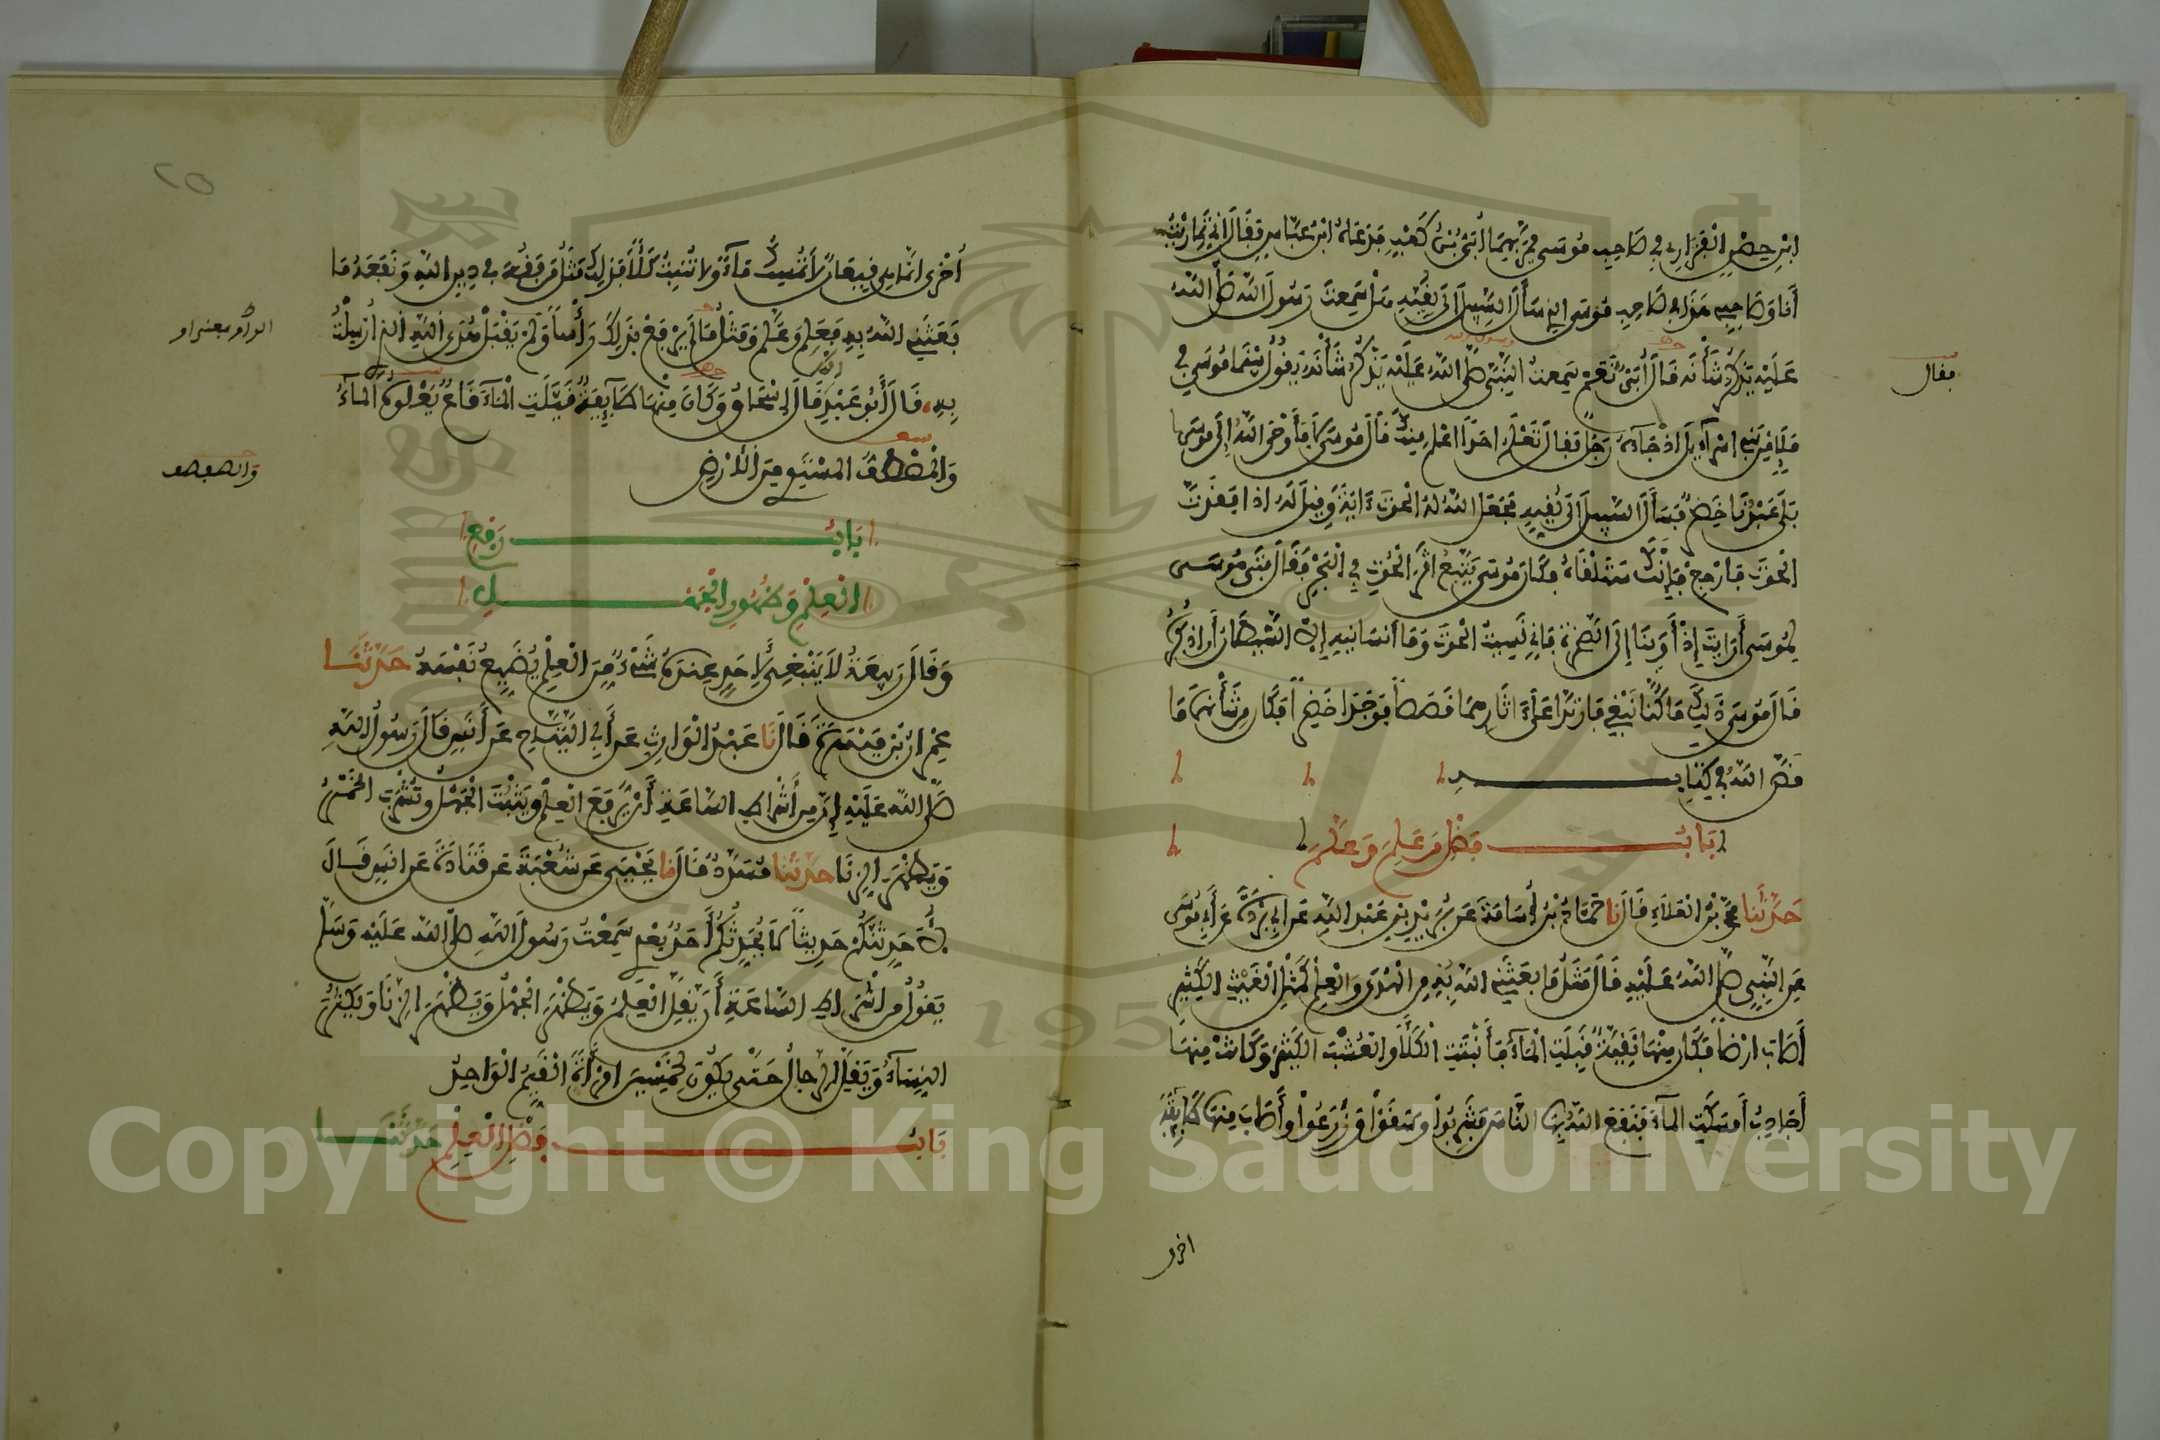 ابن حصن الفزاري في صاحب موسى فمر بهما ابي بن كعب فدعاه ابن عباس فقال اني تماريت
أنا وصاحبي هذا في صاحب موسى الذي سأل السبيل الى لقيه هل سمعت رسول الله صلى الله
عليه يذكر شأنه قال أبي نعم سمعت النبي صلى الله عليه يذكر شأنه يقول بينما موسى في
ملإ من بني اسرآءيل اذ جآءه رجل فقال تعلم احدا اعلم منك قال موسى لا فأوحى الله إلى موسى
بلى عبدنا خضر فسأل السبيل الى لقيه فجعل الله له الحوت ءاية وقيل له اذا فقدت
الحوت فارجع فإنك ستلقاه فكان موسى يتبع اثر الحوت في البحر فقال فتى موسى
لموسى أرايت إذ أوينا إلى الصخرة فإني نسيت الحوت وما أنسانيه إلا الشيطان أن اذكره
قال موسى ذلك ما كنا نبغي فارتدا على ءاثارهما قصصا فوجدا خضرا فكان من شأنهما ما
قص الله في كتابه
باب فضل من علم وعلم
حدثنا محمد بن العلاء قال نا حماد بن أسامة عن بريد بن عبد الله عن ابي بردة عن أبي موسى
عن النبي صلى الله عليه قال مثل ما بعثني الله به من الهدى والعلم كمثل الغيث الكثير
أصاب ارضا فكان منها نقية قبلت المآء فأنبتت الكلأ والعشب الكثير وكانت منها
أجادب أمسكت المآء فنفع الله بها الناس فشربوا وسقوا وزرعوا وأصاب منها طايفة
اخرى
فقال
٢٥
أخرى انما هي قيعان لا تمسك مآء ولا تنبت كلأ فذلك مثل من فقه في دين الله ونفعه ما
بعثني الله به فعلم وعلم ومثل من لم يرفع بذلك رأسا ولم يقبل هدى الله الذي أرسلت
به قال أبو عبد الله قال إسحاق وكان منها طايفة قيلت المآء قاع يعلوه المآء
والصفصف المستوي من الأرض
باب رفع
العلم وظهور الجهل
وقال ربيعة لا ينبغي لاحد عنده شيء من العلم يضيع نفسه حدثنا
عمران بن ميسرة قال نا عبد الوارث عن أبي التياح عن أنس قال رسول الله
صلى الله عليه إن من أشراط الساعة أن يرفع العلم ويثبت الجهل وتشرب الخمر
ويظهر الزنا حدثنا مسدد قال نا يحيى عن شعبة عن قتادة عن انس قال
لأحدثنكم حديثا لا يحدثكم أحد بعدي سمعت رسول الله صلى الله عليه وسلم
يقول من اشراط الساعة أن يقل العلم ويظهر الجهل ويظهر الزنا ويكثر
النسآء ويقل الرجال حتى يكون لخمسين امرأة القيم الواحد
باب فضل العلم حدثنا
والصفصف
Copyright © King Saud University
1957